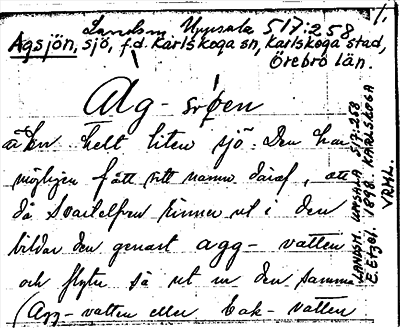 Landsm Uppsala 517:258
Agsjön, sjö, f.d. Karlskoga sn, Karlskoga stad,
Örebro län.
Alg-
är en helt liten sjö. Den har
möjligen fått sitt namn däraf, att
då Svartelfven rinner ut i den
bildar den genast agg-vatten
och flyter så ut ur den samma
(Agg-vatten eller bak-vatten
LANDSM. UPSALA 517:258
E. Etzel. 1898. KARLSKOGA
VRML.